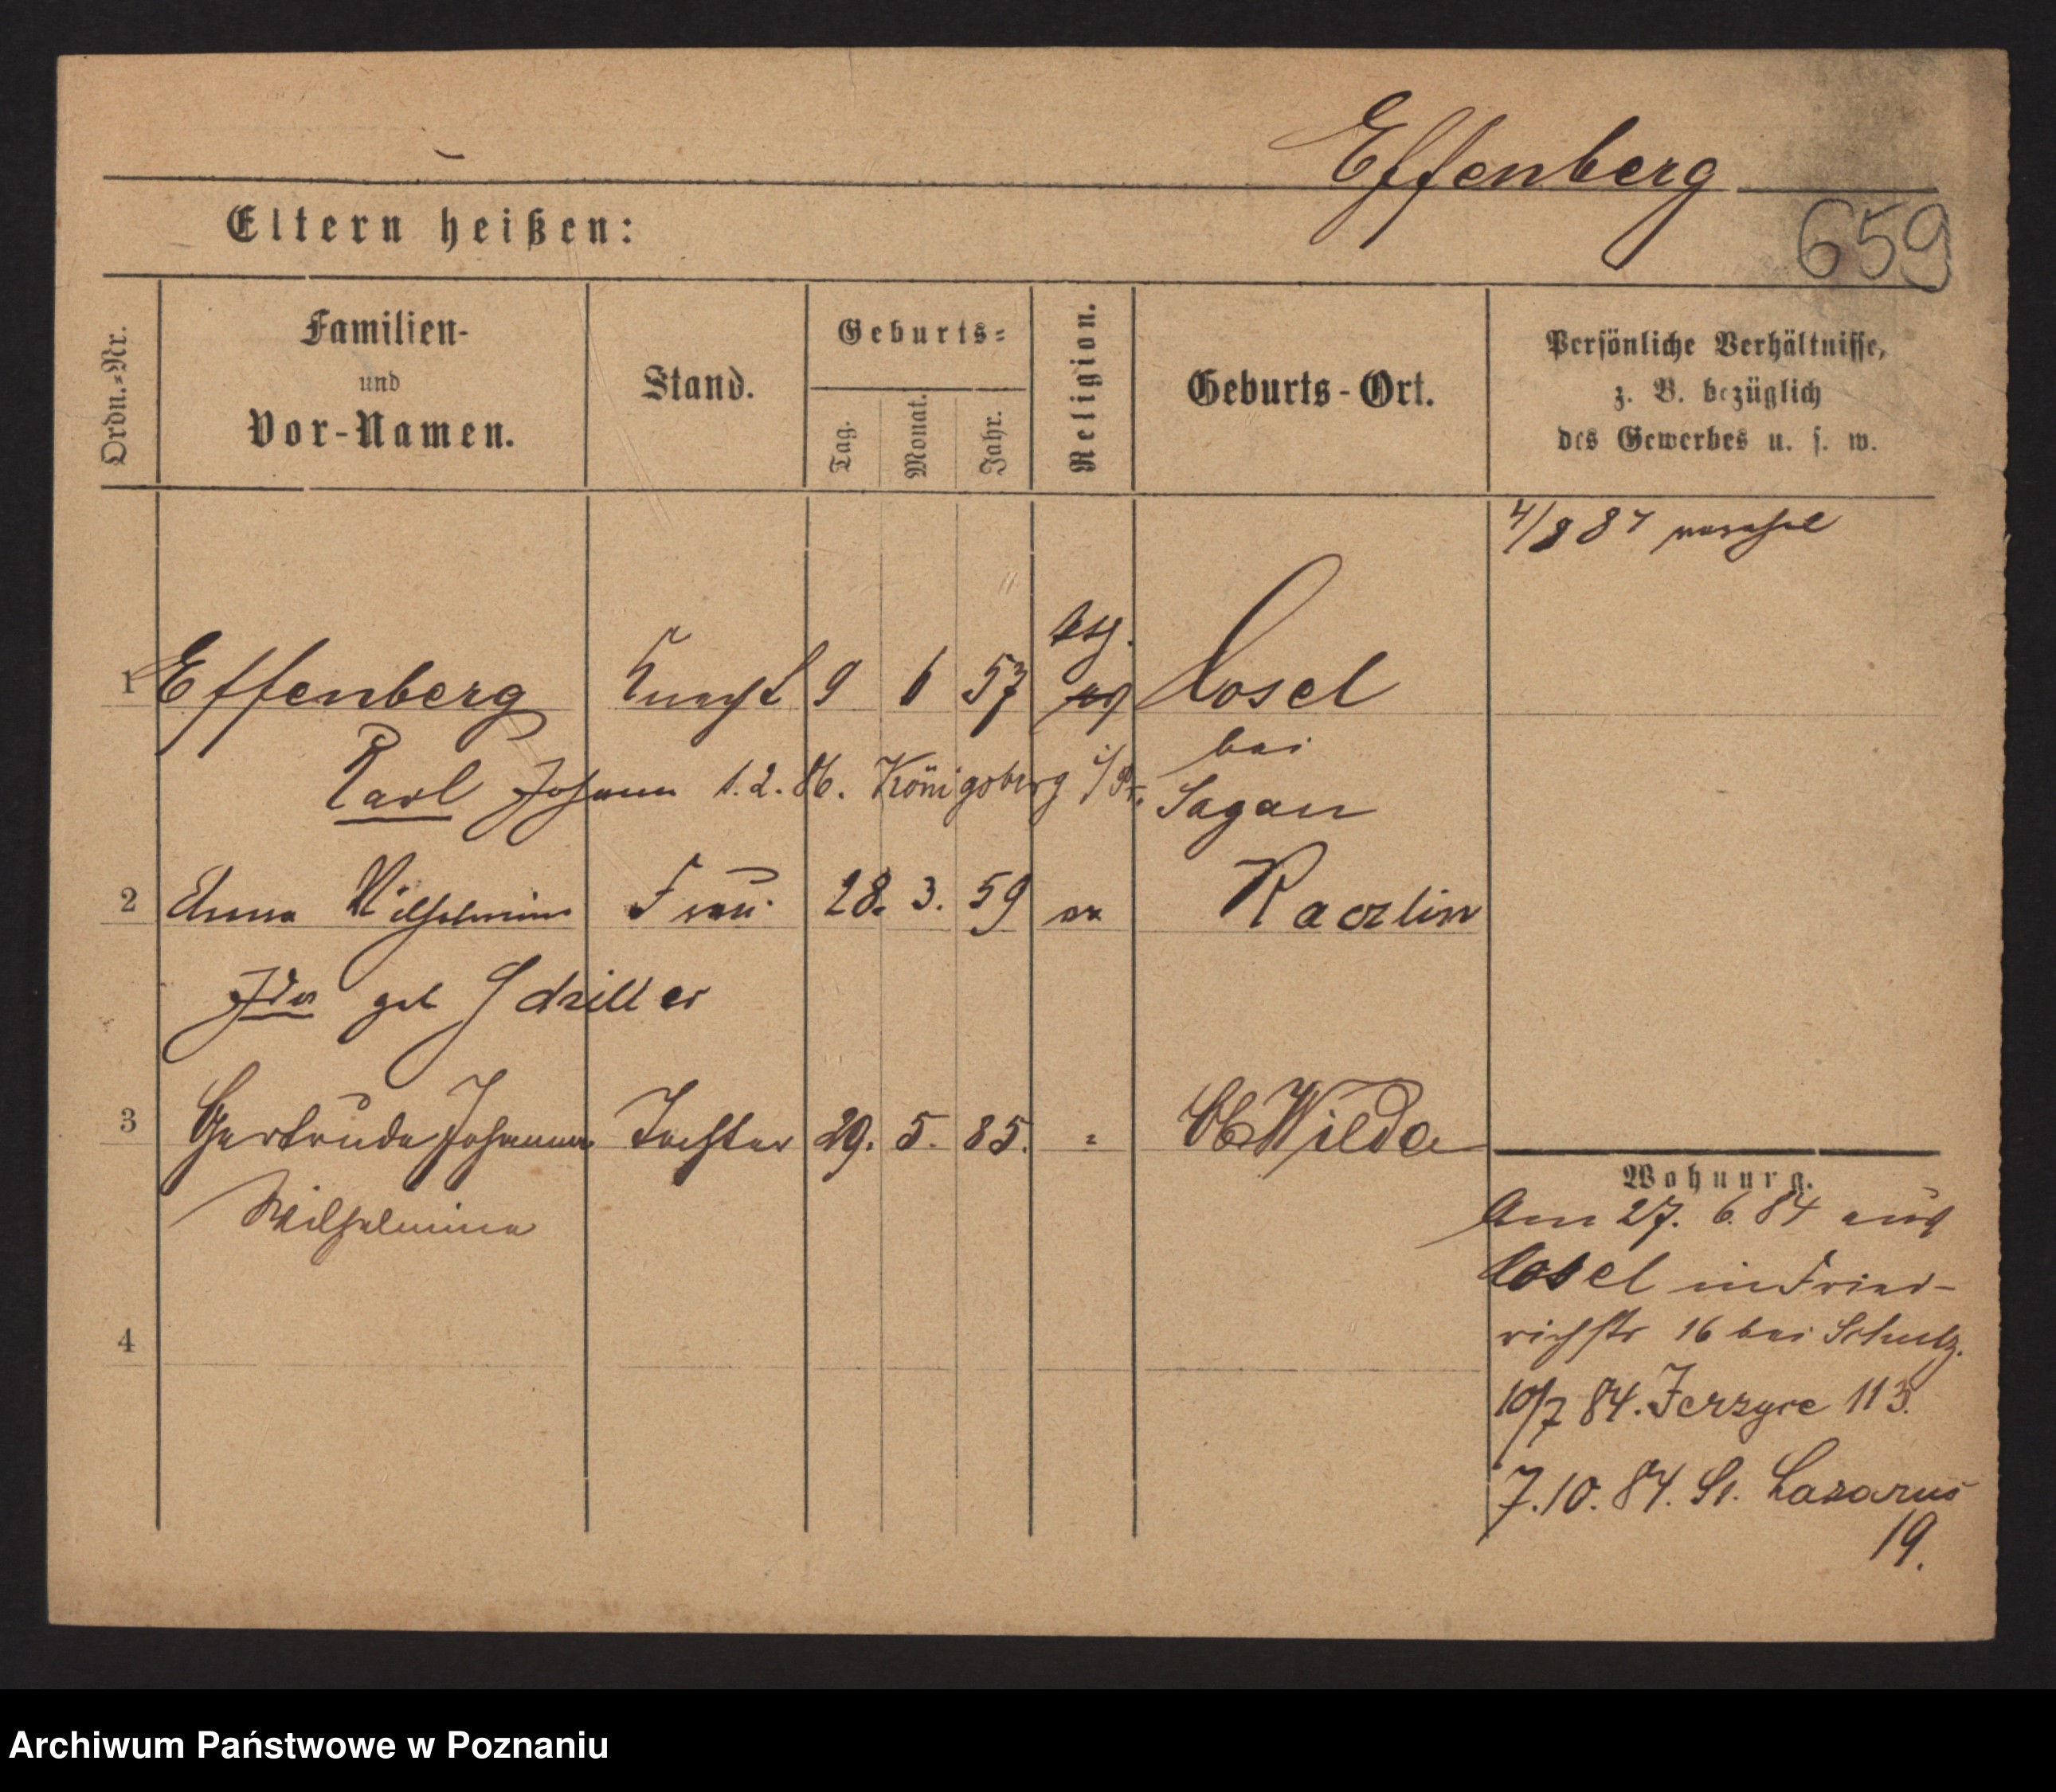 Effenberg
Eltern heißen:
659
Ordn.=Nr.
Familien-
und
Vor-Namen.
Stand.
Geburts=
Tag.
Monat.
Jahr.
Religion.
Geburts-Ort.
Persönliche Verhältnisse,
z. B. bezüglich
des Gewerbes u. s. w.
4/8 87
1 Effenberg Knecht 9 6 57 Cosel
Karl Johann 1.2.86. Königsberg i/Pr. bei
Sagan
2 Anna Wilhelmine Frau 28. 3. 59 Raczlin
Ida geb Schiller
3 Gertrude Johanna Tochter 29. 5. 85. " Ob Wilda
Wilhelmine
4
Wohnung.
Am 27. 6. 84 aus
Cosel in Fried-
richstr 16 bei Schulz.
10/7 84. Jerzyce 113.
7.10. 84. St. Lazarus
19.
Archiwum Państwowe w Poznaniu